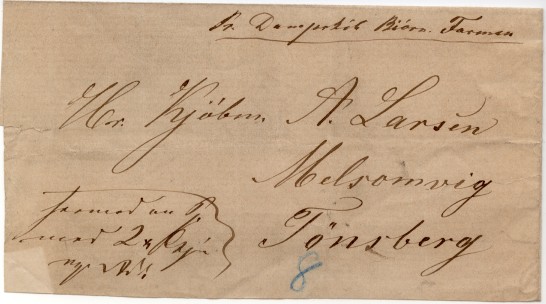 Pr. Dampskib Biörn Farmen
Hr. Kjöbm. A. Larsen
Melsomvig
Tönsberg
med 2
8